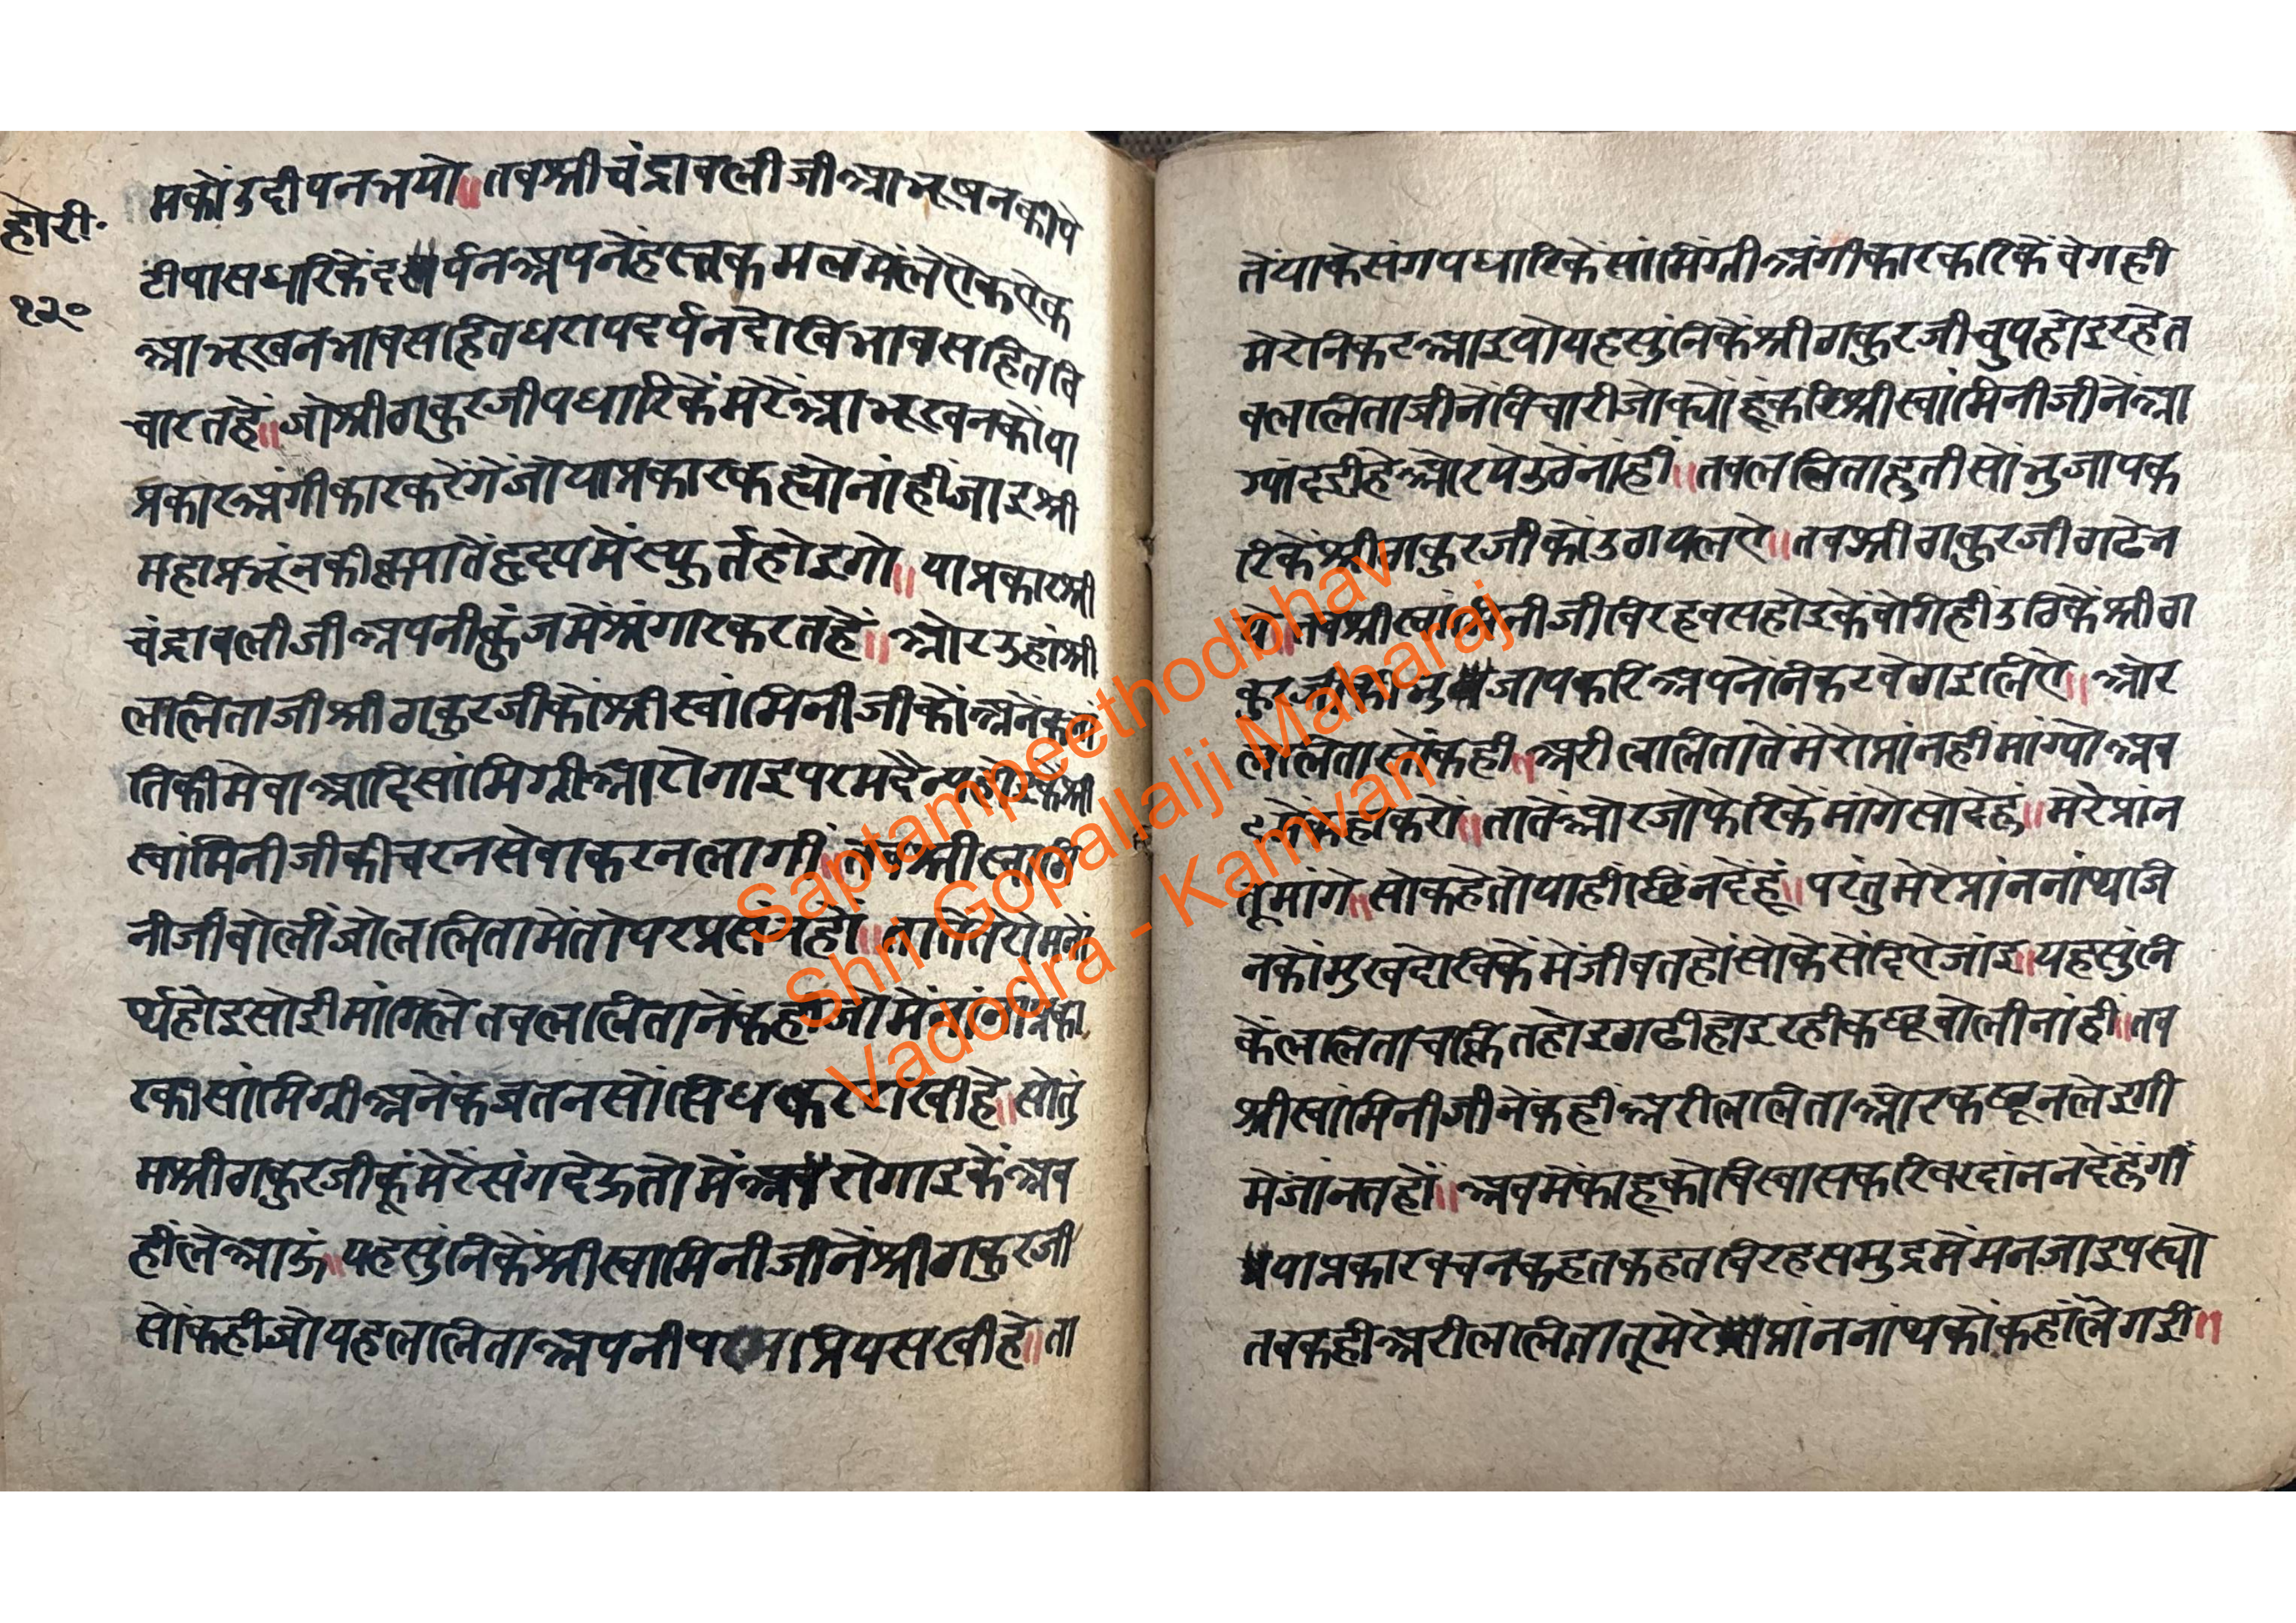 होरी॰
१२०
मकों उदीपन भयो॥ तब श्री चंद्रावली जी आभूषन की पे
टी पास धारिकें दर्पन अपने हस्त कमल में ले ऐक ऐक
आभूखन भाव सहित धराप दर्पन देखि भाव सहित वि
चारत हें॥ जो श्री ठाकुरजी पधारिकें मेरें आभूखन कों या
प्रकार अंगीकार करेंगें जो या प्रकार कह्यो नांहीं जाइ श्री
महाप्रभूंन की कृपा तें हृदय में स्फुर्त होइगो॥ या प्रकार श्री
चंद्रावली जी अपनी कुंज में श्रंगार करत हें॥ ओर उहां श्री
ललिता जी श्री ठाकुरजी कों श्री स्वांमिनी जी कों अनेंक भां
ति की मेवा आदि सांमिग्री आरोगाइ परम दैन्य होइकें श्री
स्वांमिनी जी की चरन सेवा करन लागीं॥ तब श्री स्वांमि
नी जी बोलीं जो ललिता में तो पर प्रसंन हों॥ तातें तेरो मनों
र्थ होइ सोई मांगि ले तब ललिता नें कही जो में नांनां प्रका
र की सांमिग्री अनेंक जतन सों सिध कर राखी हे॥ सो तुं
म श्री ठाकुरजी कूं मेरें संग देऊ तो में अब रोगाइ कें अब
हीं ले आऊं॥ यह सुंनि कें श्री स्वामिनी जी नें श्री ठाकुर जी
सों कही जो यह ललिता अपनी परम प्रिय सखी हे॥ ता
तें याके संग पधारिकें सांमिंग्री अंगीकार करिकें बेग ही
मेरे निकट आइयो यह सुंनि कें श्री ठाकुरजी चुप होइ रहे त
ब ललिता जी नें विचारी जो क्यों हूं करि श्री स्वांमिनी जी नें आ
ग्यां दई हे ओर ये उठें नांहीं॥ तब ललिता हुती सो भुजा पक
रिकें श्री ठाकुरजी कों उठाय लऐ॥ तब श्री ठाकुरजी ठाढे भ
ये॥ तब श्री स्वांमिनी जी बिरह बस होइ के बेगि हीं उठिकें श्री ठा
कुरजी की भुजा पकरि अपनें निकट बेठाइ लिऐ॥ ओर
ललिता सों कही॥ अरी ललिता तें मेरो प्रांन हीं मांग्यो अब
में कहा करों॥ तातें ओर जो फेरिकें मांगे सो देहुं॥ मेरे प्रांन
तू मांगे॥ सो कहे तो याहीं छिंन देहूं॥ परंतु मेरे प्रांननांथ जि
नकों मुख देखिकें में जीवत हों सो केसें दिऐ जांइ॥ यह सुंनि
कें ललिता चक्रित होइ ठाढी होइ रही कछू बोली नांहीं॥ तब
श्री स्वांमिनी जी नें कहीं अरी ललिता ओर कछू न लेइगी
में जांनत हों॥ अब में काहू को विस्वास करि वरदांन न देहुंगीं
या प्रकार बचन कहत कहत बिरह समुद्र में मन जाइ पस्यो
तब कही अरी ललिता तू मेरे प्रांननांथ कों कहां ले गई॥